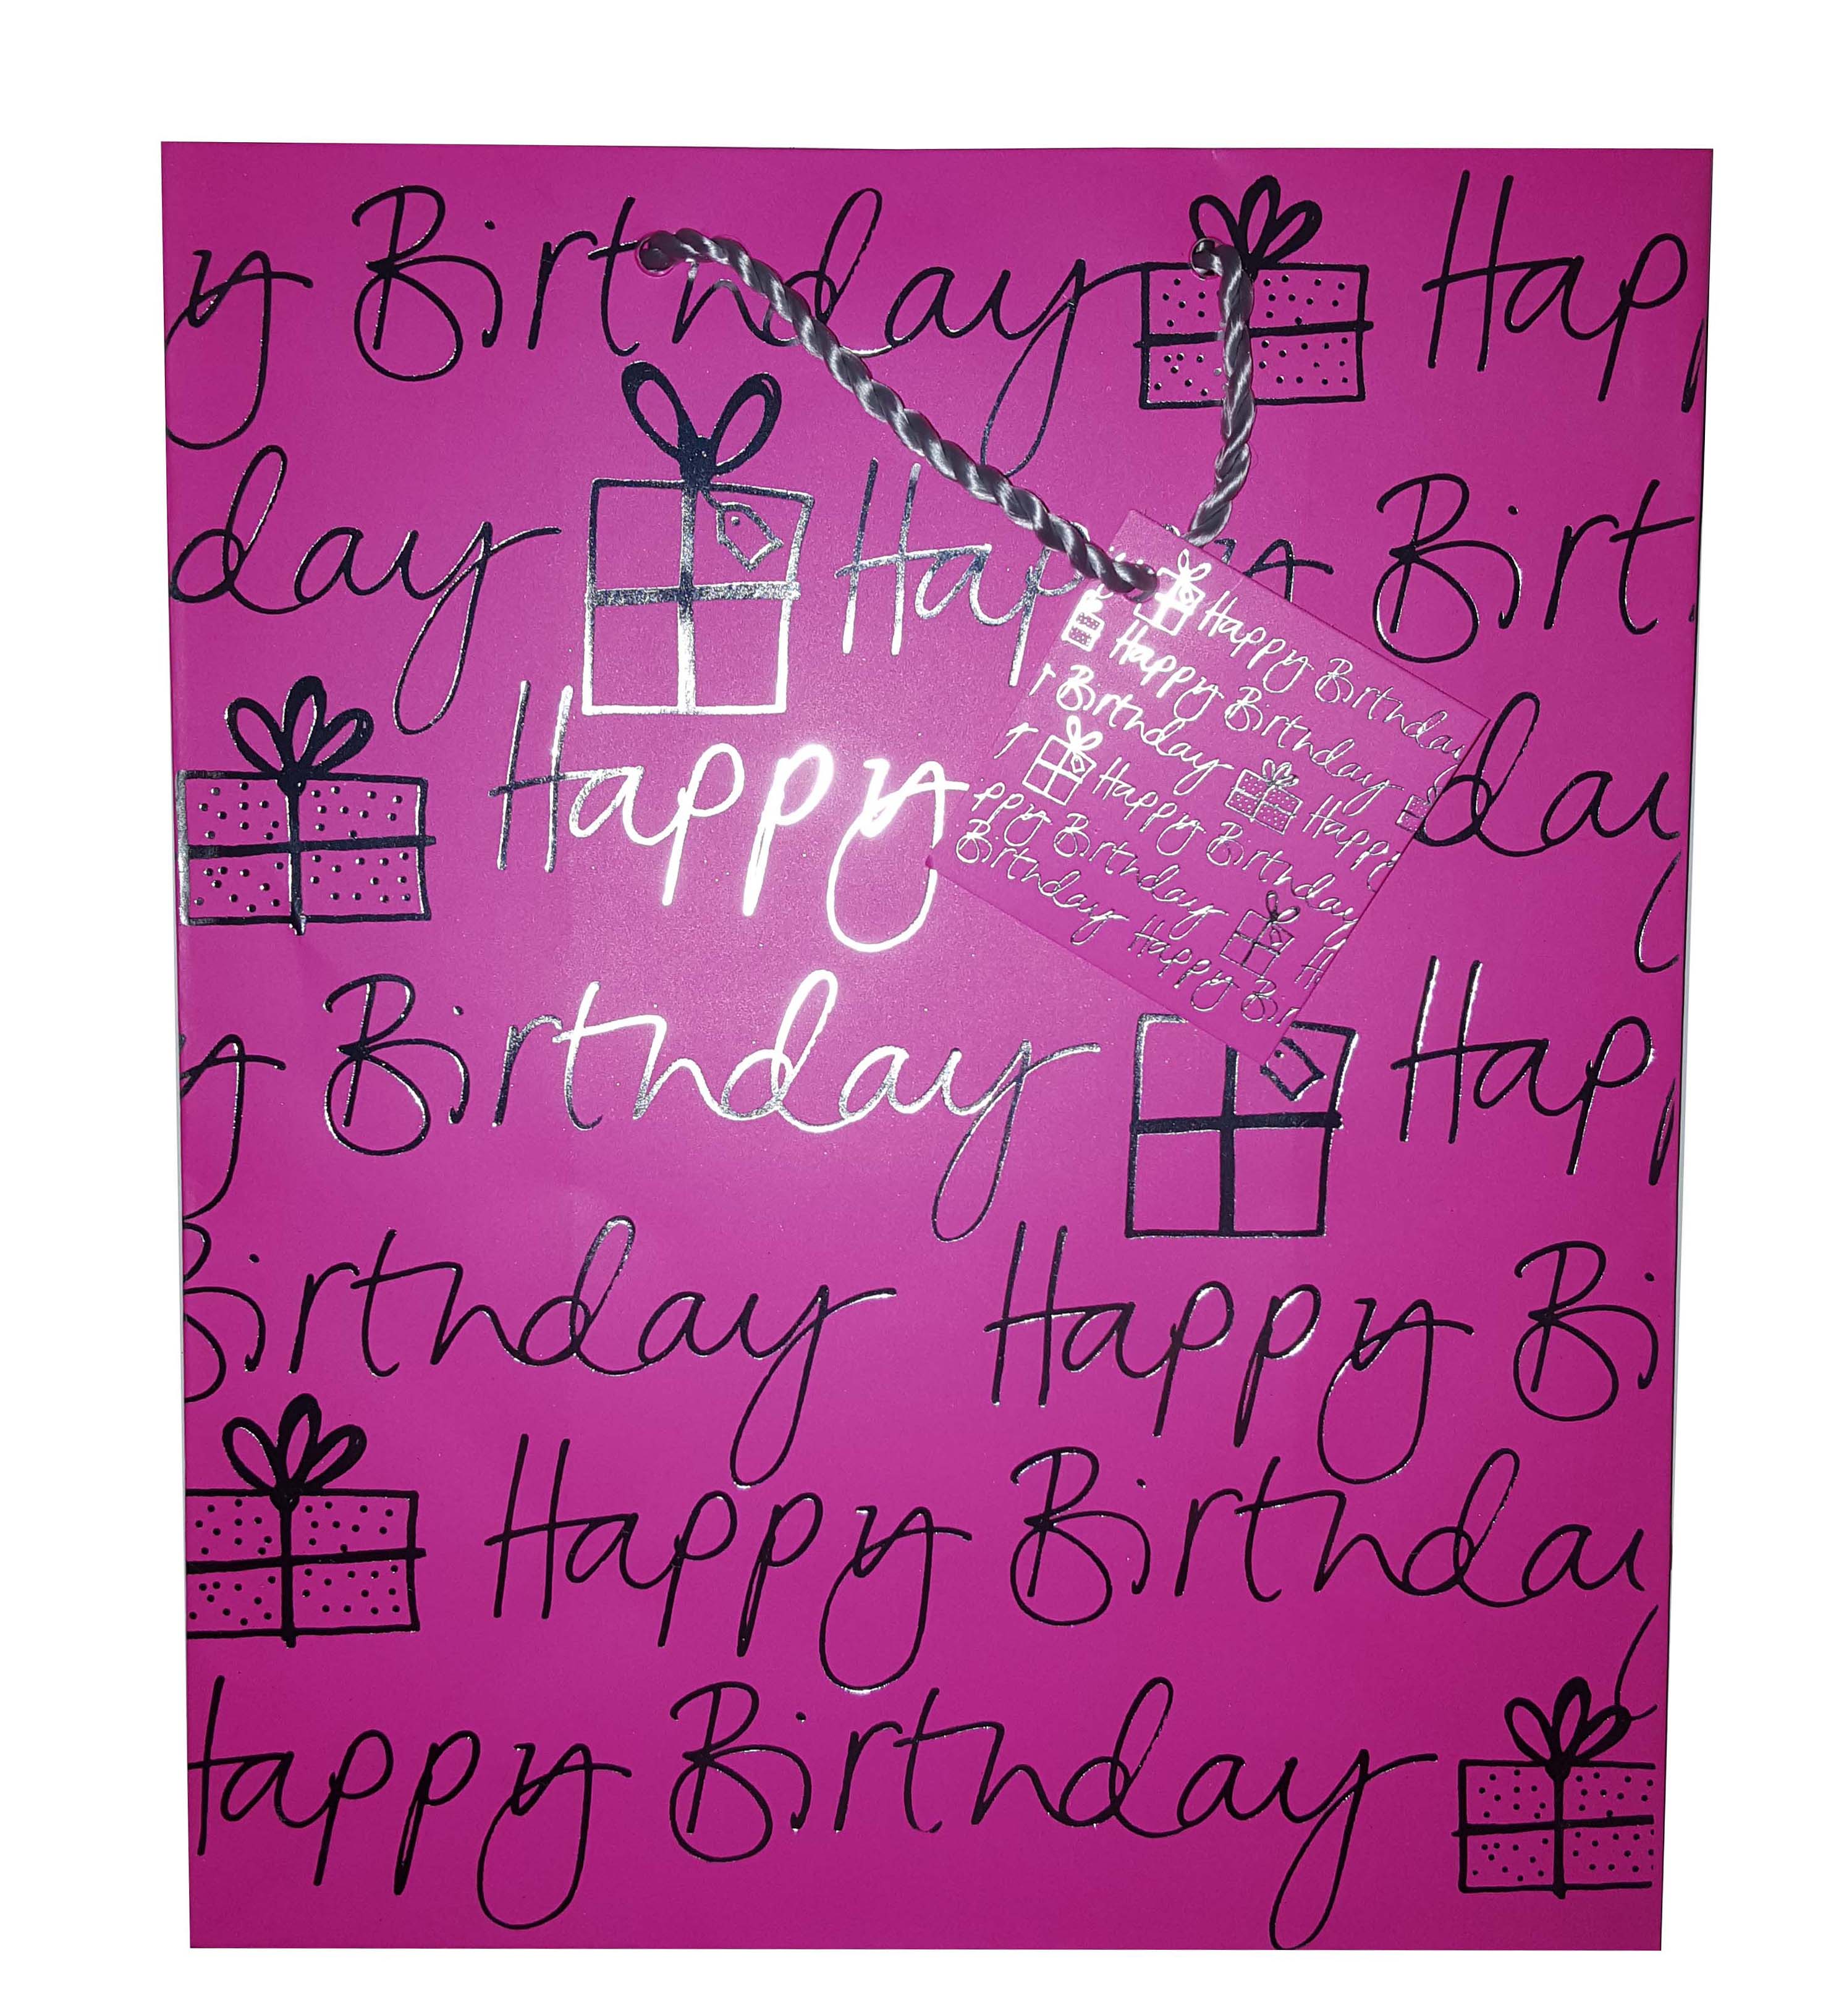 y Birthday Hap
day Happy Birt
Happy day
y Birthday Hap
Birthday Happy Bi
Happy Birthdai
Happy Birthday
Happy Birthday
Happy Birthday
Birthday Happy
Happy Birthday
ppy Birthday H
Birthday Happy Bi